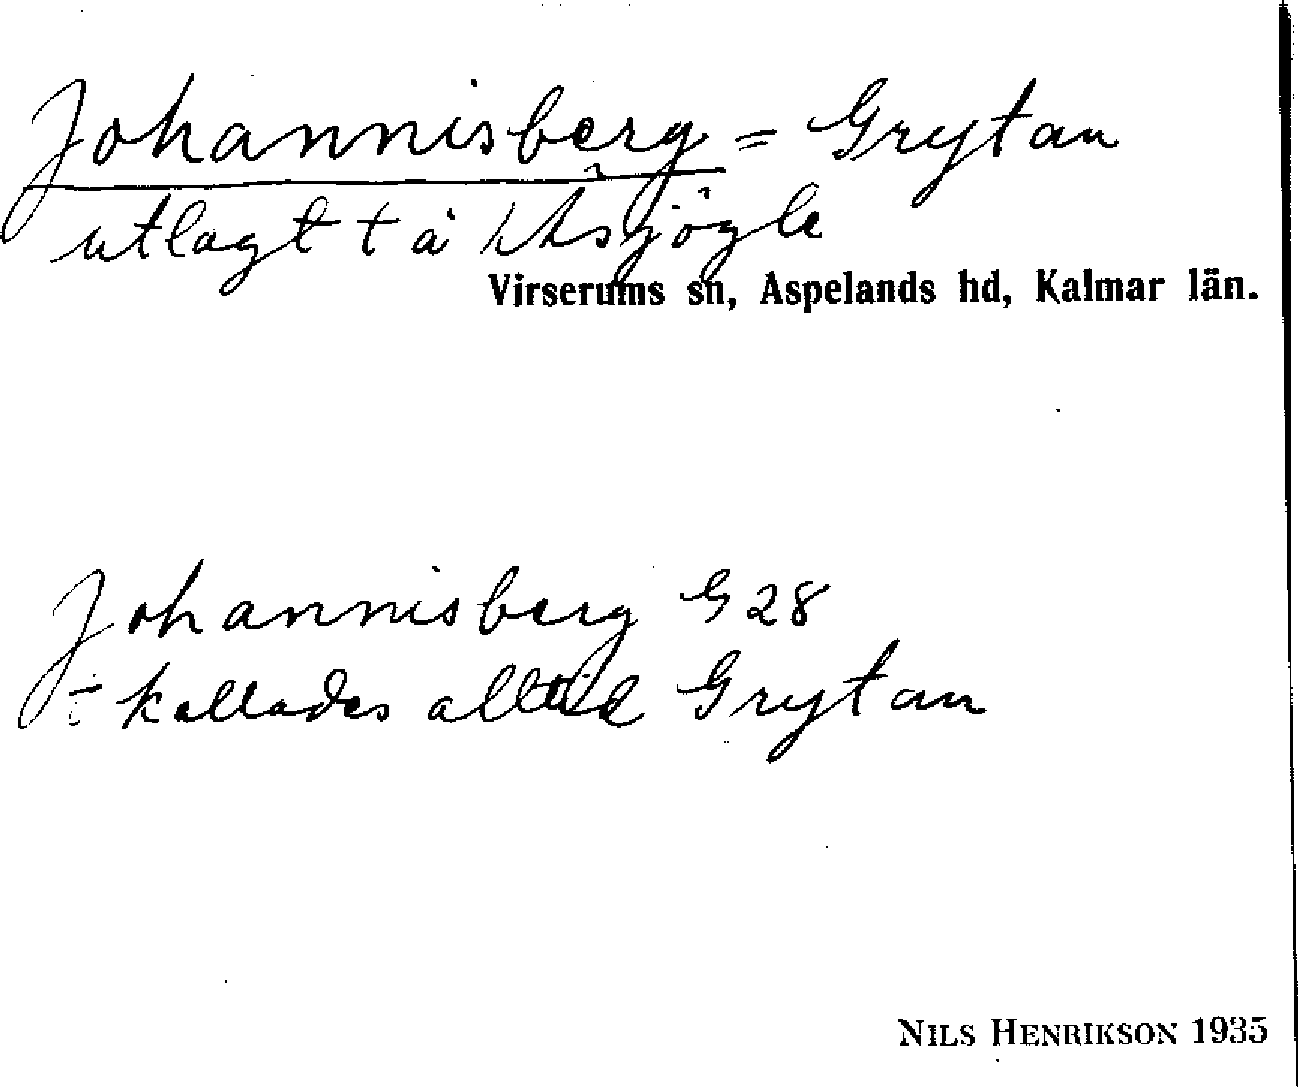 Johannisberg = Grytan
utlagt t å
Virserums sn, Aspelands hd, Kalmar län.
Johannisberg G28
÷ kallades alltid Grytan
NILS HENRIKSON 1935